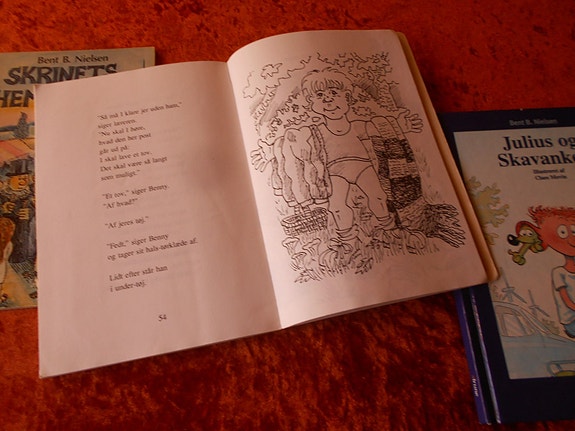 Bent B. Nielsen
SKRINETS
"Så må I klare jer uden ham,"
siger læreren.
"Nu skal I høre,
hvad den her post
går ud på:
I skal lave et tov.
Det skal være så langt
som muligt."
"Et tov," siger Benny.
"Af hvad?"
"Af jeres tøj."
"Fedt," siger Benny
og tager sit hals-tørklæde af.
Lidt efter står han
i under-tøj.
54
Bent B. Nielsen
Julius og
Skavank
Illustreret af
Claus Martin